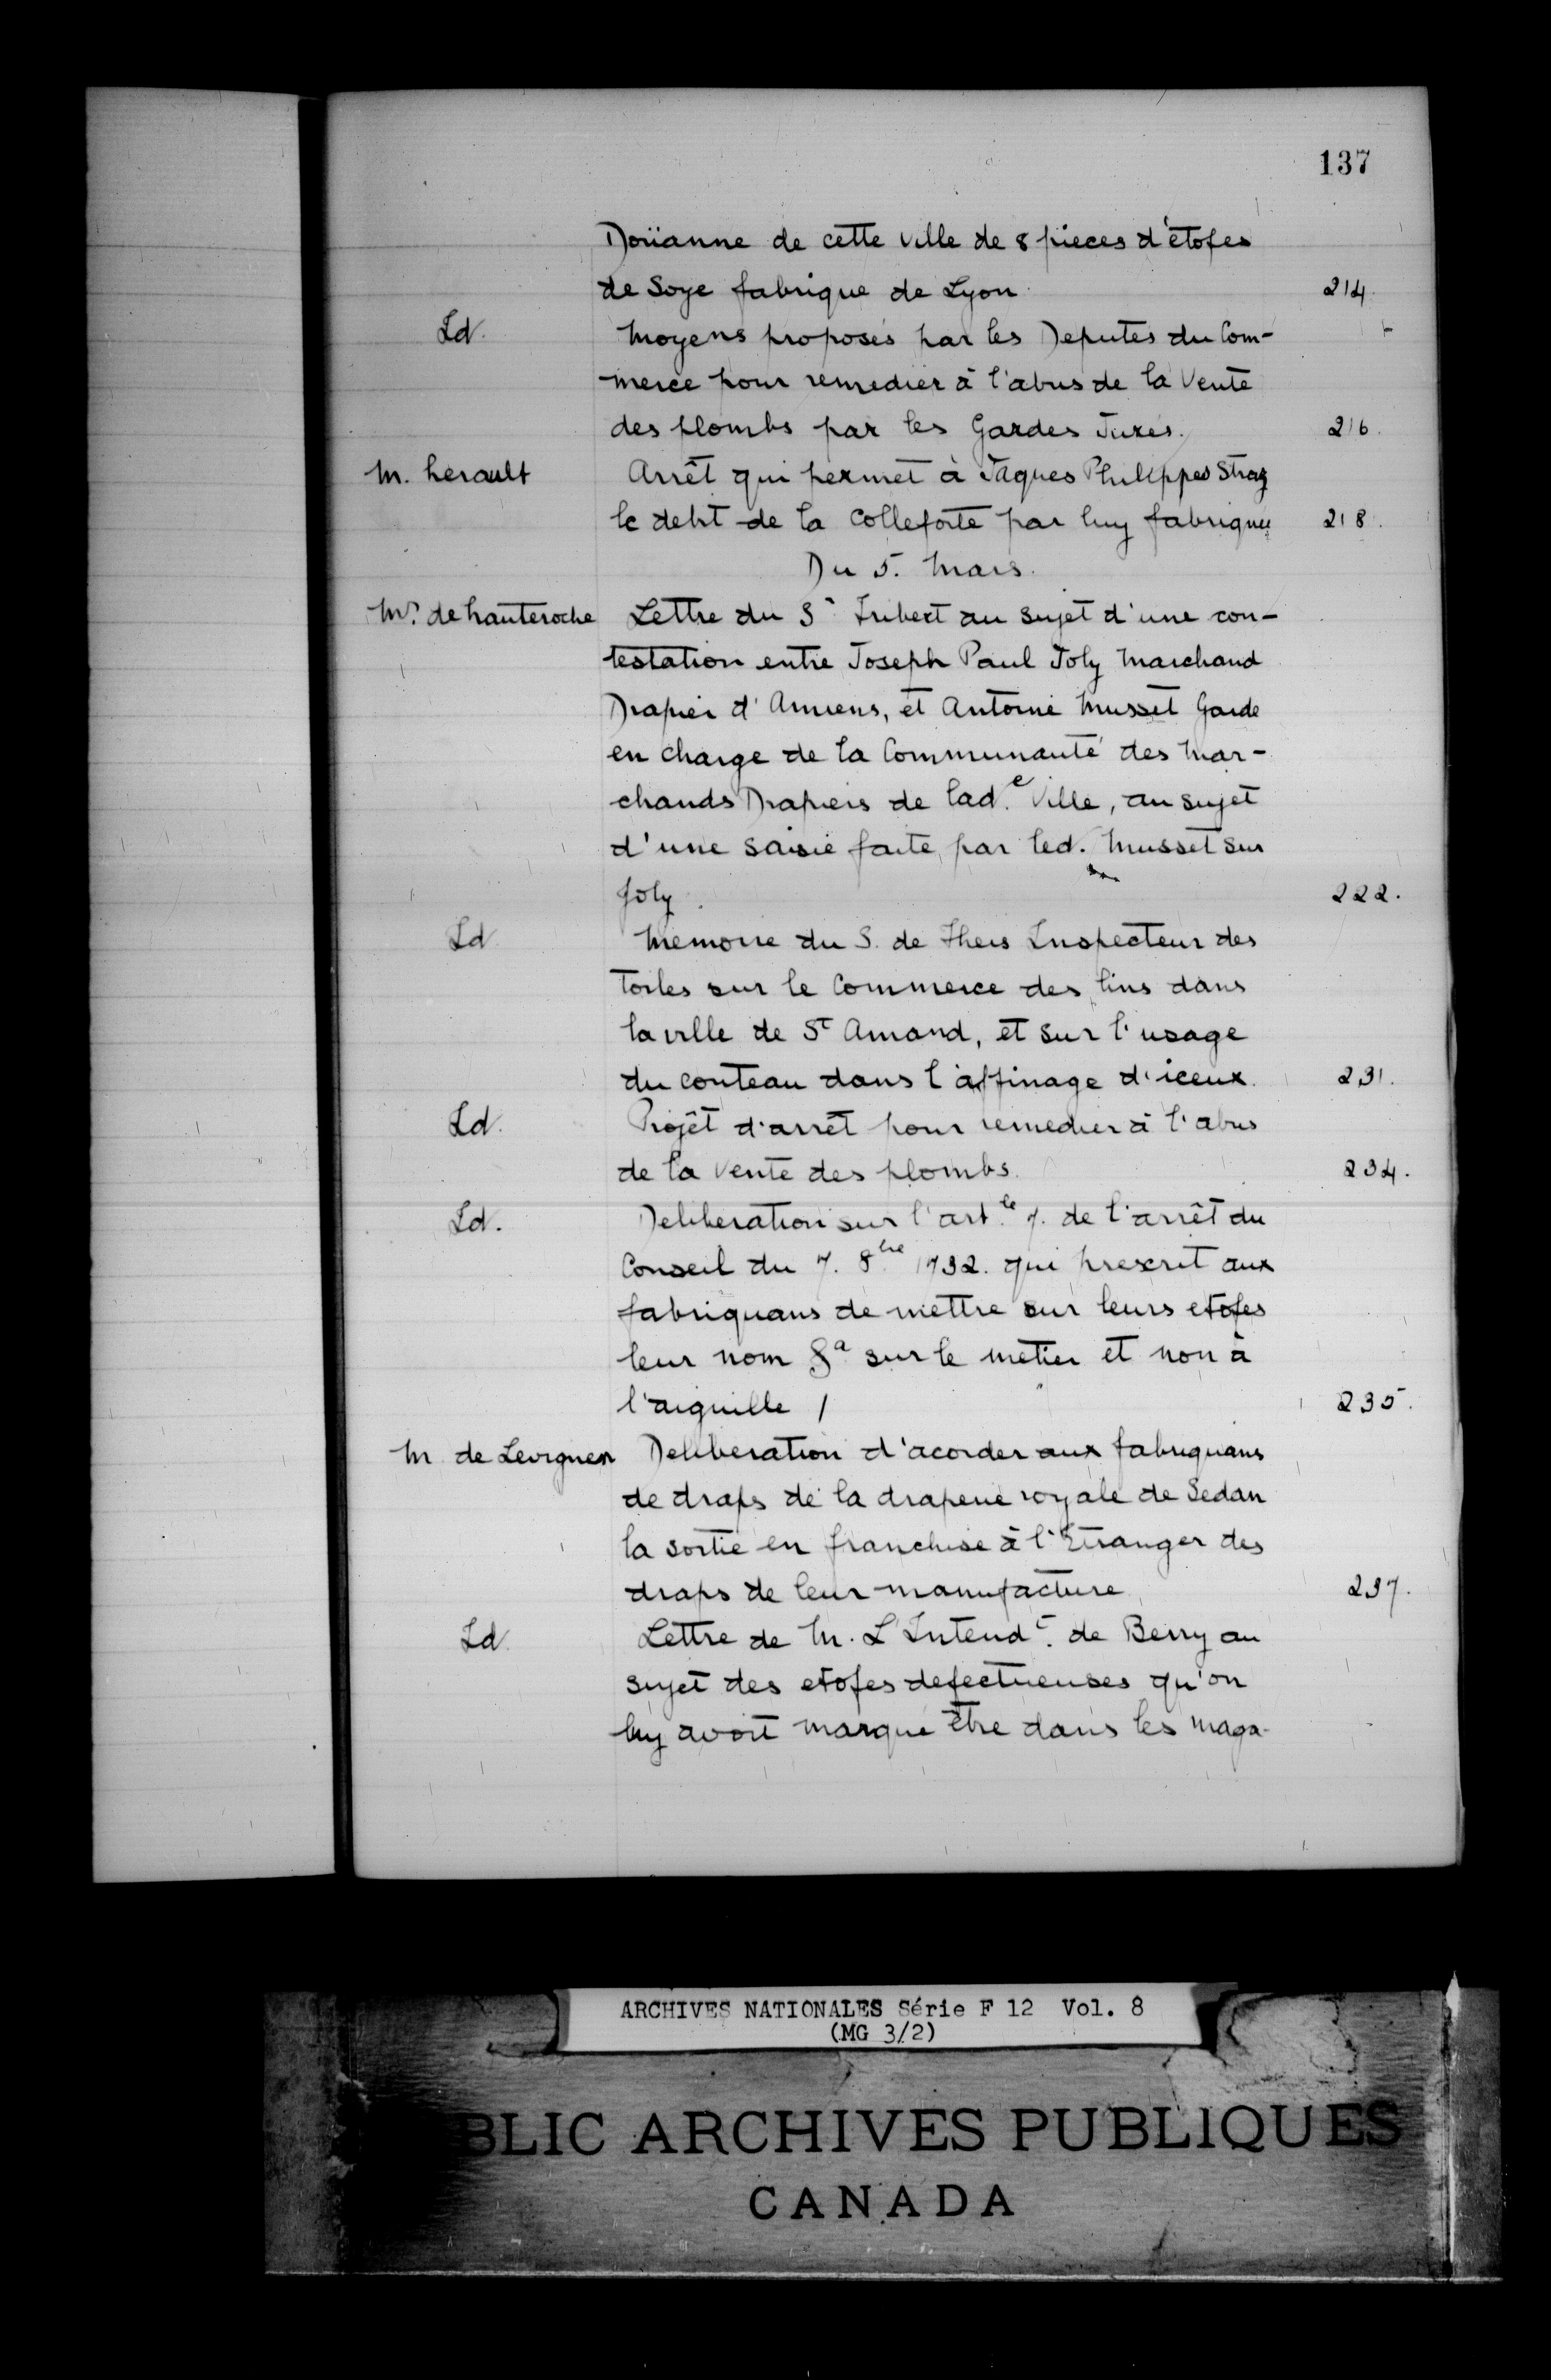 137
Doüanne de cette ville de 8 pieces d'étofes
de Soye fabrique de Lyon 214.
Id. Moyens proposés par les Deputés du Com-
merce pour remedier à l'abus de la Vente
des plombs par les Gardes Jurés. 216.
M. herault Arrêt qui permet à Jaques Philippes
le debit de la Colleforte par luy fabriquée 218.
Du 5. Mars.
Mr. de hauteroche Lettre du Sr au sujet d'une con-
testation entre Joseph Paul Joly Marchand
Drapier d'Amiens, et Antoine Musset Garde
en charge de la Communauté des Mar-
chands Drapiers de lad.e Ville, au sujet
d'une saisie faite par led. Musset sur
Joly. 222.
Id Memoire du S. de Theis Inspecteur des
Toiles sur le Commerce des lins dans
la ville de St Amand, et sur l'usage
du couteau dans l'affinage d'iceux. 231.
Id. Projêt d'arrêt pour remedier à l'abus
de la vente des plombs. 234.
Id. Deliberation sur l'art.le 7. de l'arrêt du
Conseil du 7. 8bre 1732. qui prescrit aux
fabriquans de mettre sur leurs etofes
leur nom &a sur le metier et non à
l'aiguille / 235.
M de Levignen Deliberation d'acorder aux fabriquans
de draps de la draperie royale de Sedan
la sortie en franchise à l'Etranger des
draps de leur manufacture 237.
Id. Lettre de M. L'Intendt. de Berry au
sujet des etofes defectueuses qu'on
luy avoit marqué être dans les maga-
ARCHIVES NATIONALES Série F 12 Vol. 8
(MG 3/2)
BLIC ARCHIVES PUBLIQUES
CANADA